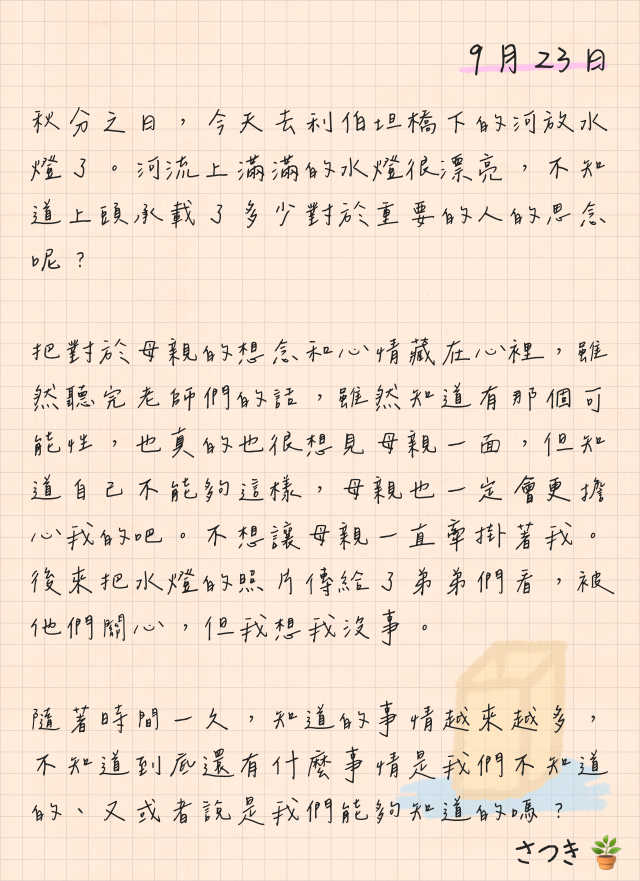 9月23日
秋分之日，今天去利伯坦橋下的河放水
燈了。河流上滿滿的水燈很漂亮，不知
道上頭承載了多少對於重要的人的思念
呢？
把對於母親的想念和心情藏在心裡，雖
然聽完老師們的話，雖然知道有那個可
能性，也真的也很想見母親一面，但知
道自己不能夠這樣，母親也一定會更擔
心我的吧。不想讓母親一直牽掛著我。
後來把水燈的照片傳給了弟弟們看，被
他們關心，但我想我沒事。
隨著時間一久，知道的事情越來越多，
不知道到底還有什麼事情是我們不知道
的、又或者說是我們能夠知道的嗎？
さつき